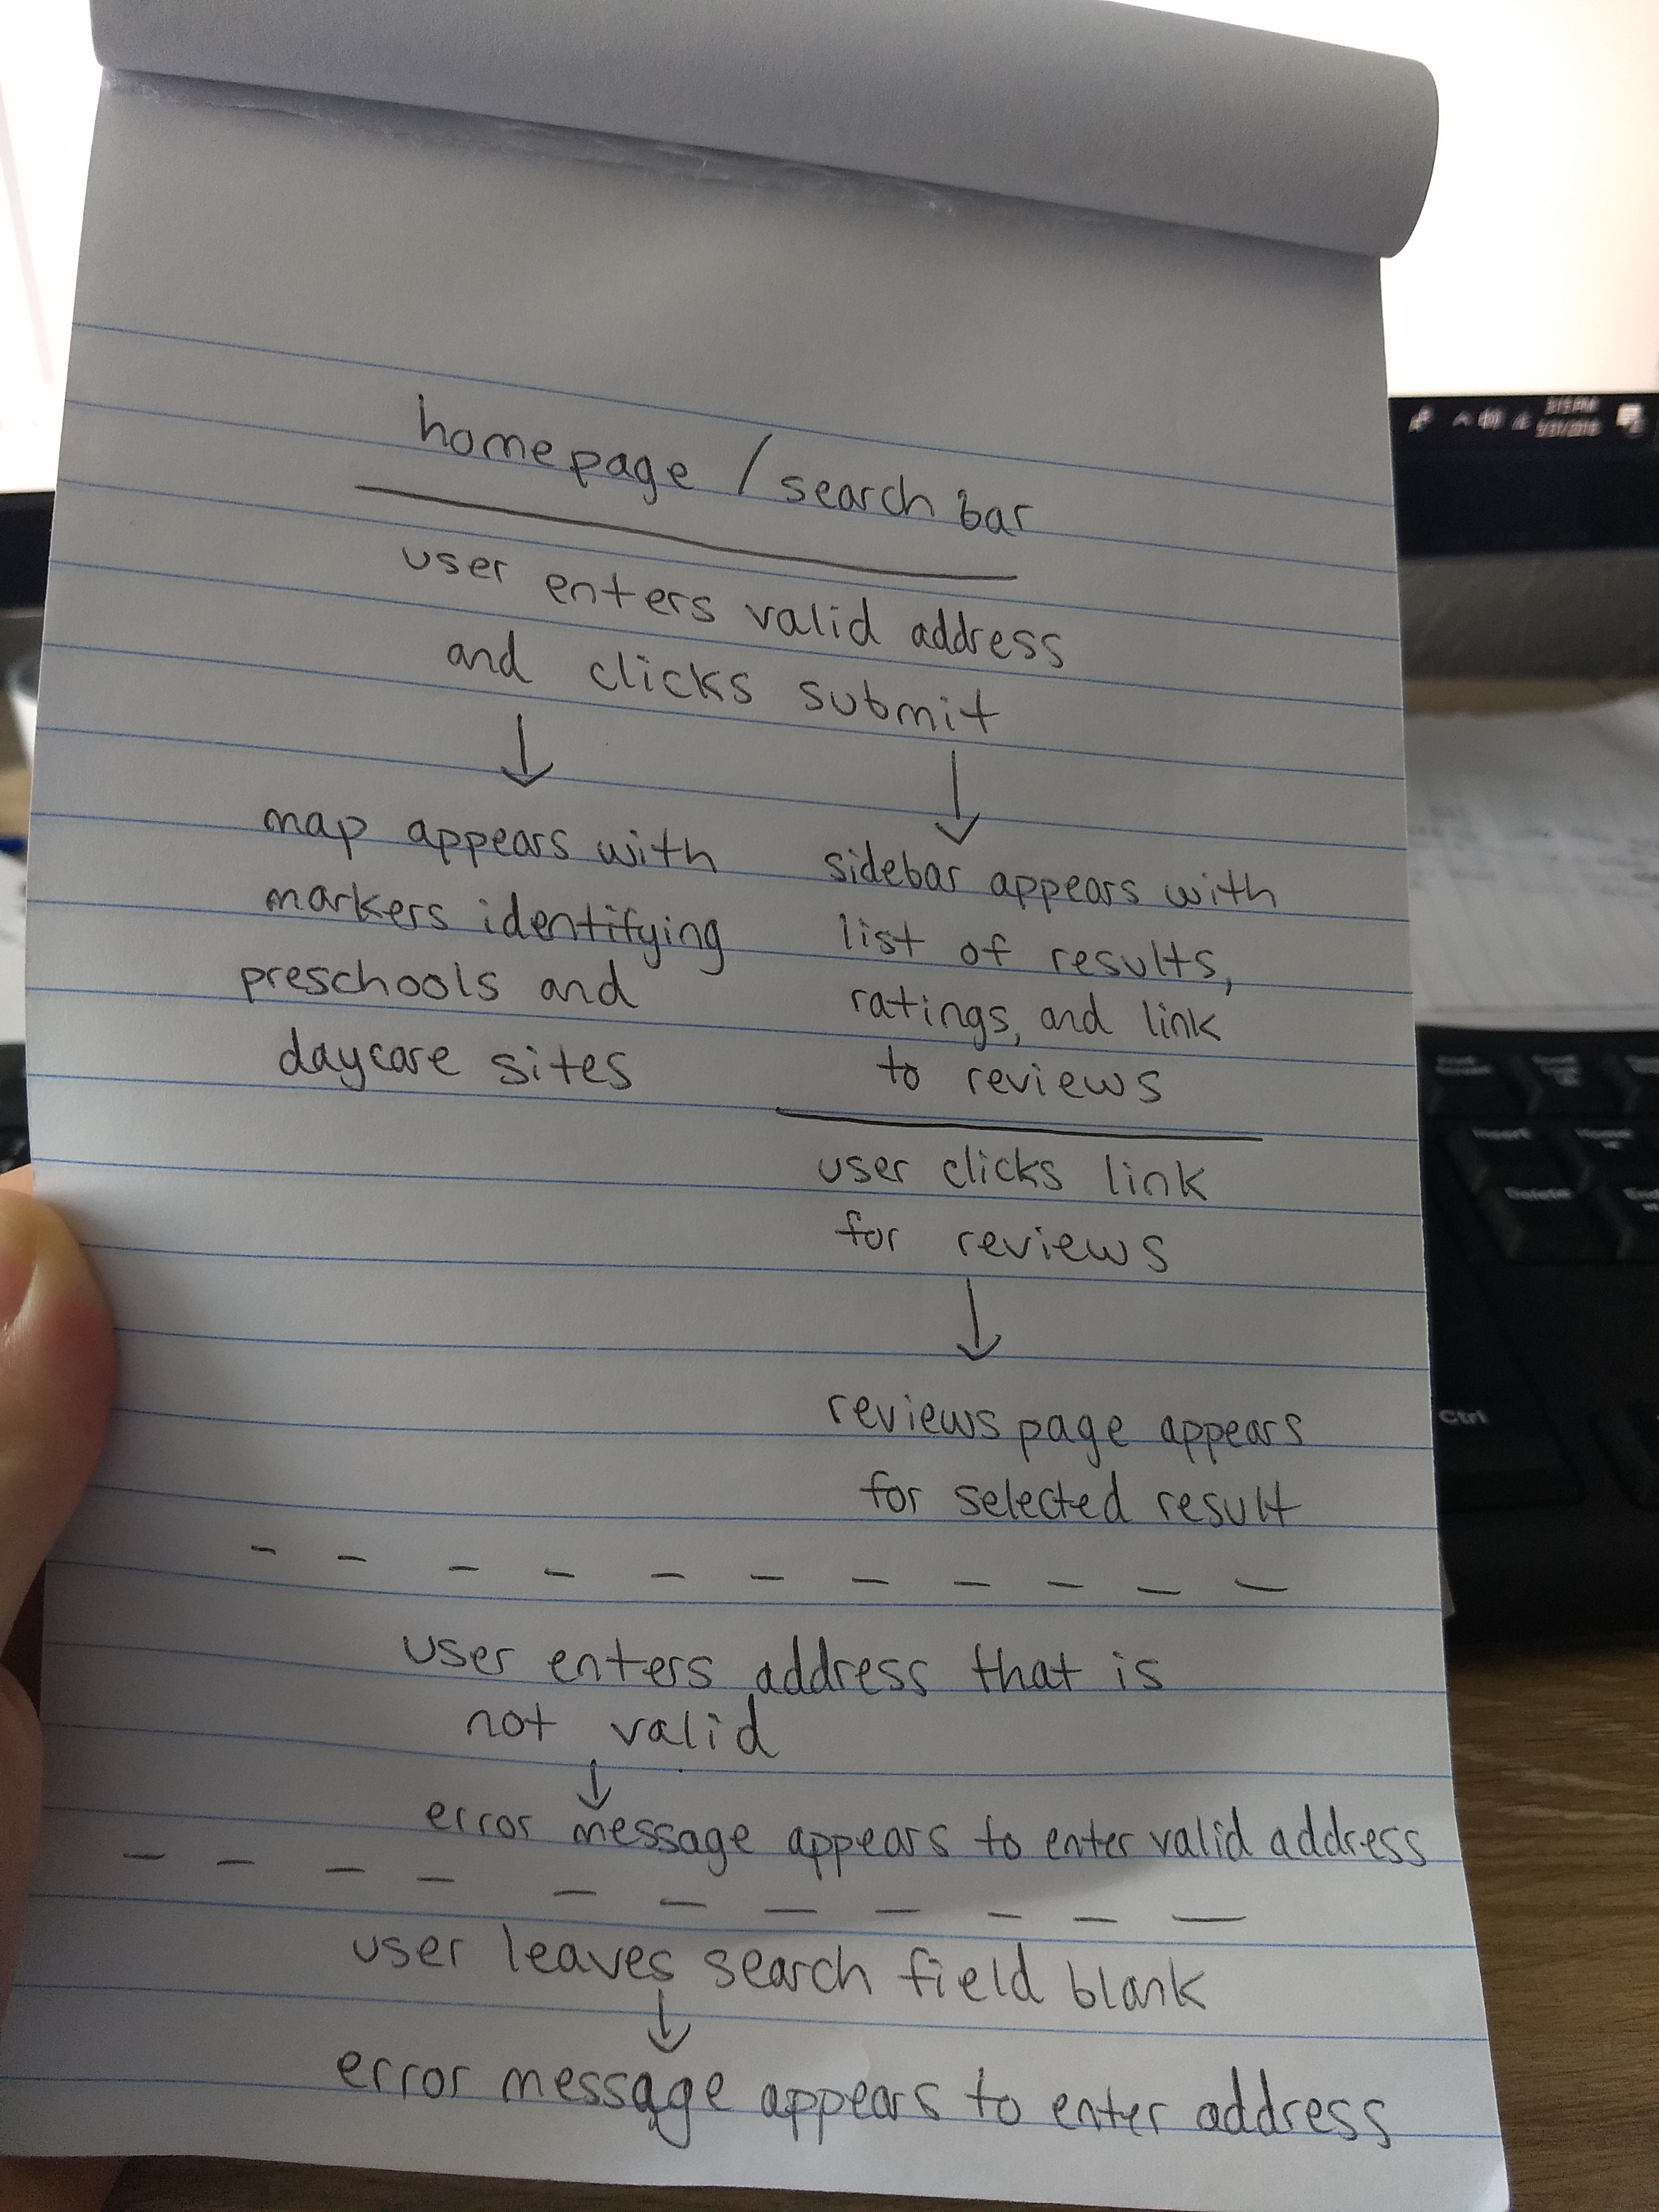 homepage / search bar
user enters valid address
and clicks submit
map appears with
markers identifying
preschools and
daycare sites
sidebar appears with
list of results,
ratings, and link
to reviews
user clicks link
for reviews
reviews page appears
for selected result
user enters address that is
not valid
error message appears to enter valid address
user leaves search field blank
error message appears to enter address
Insert
Home
Delete
End
Ctrl